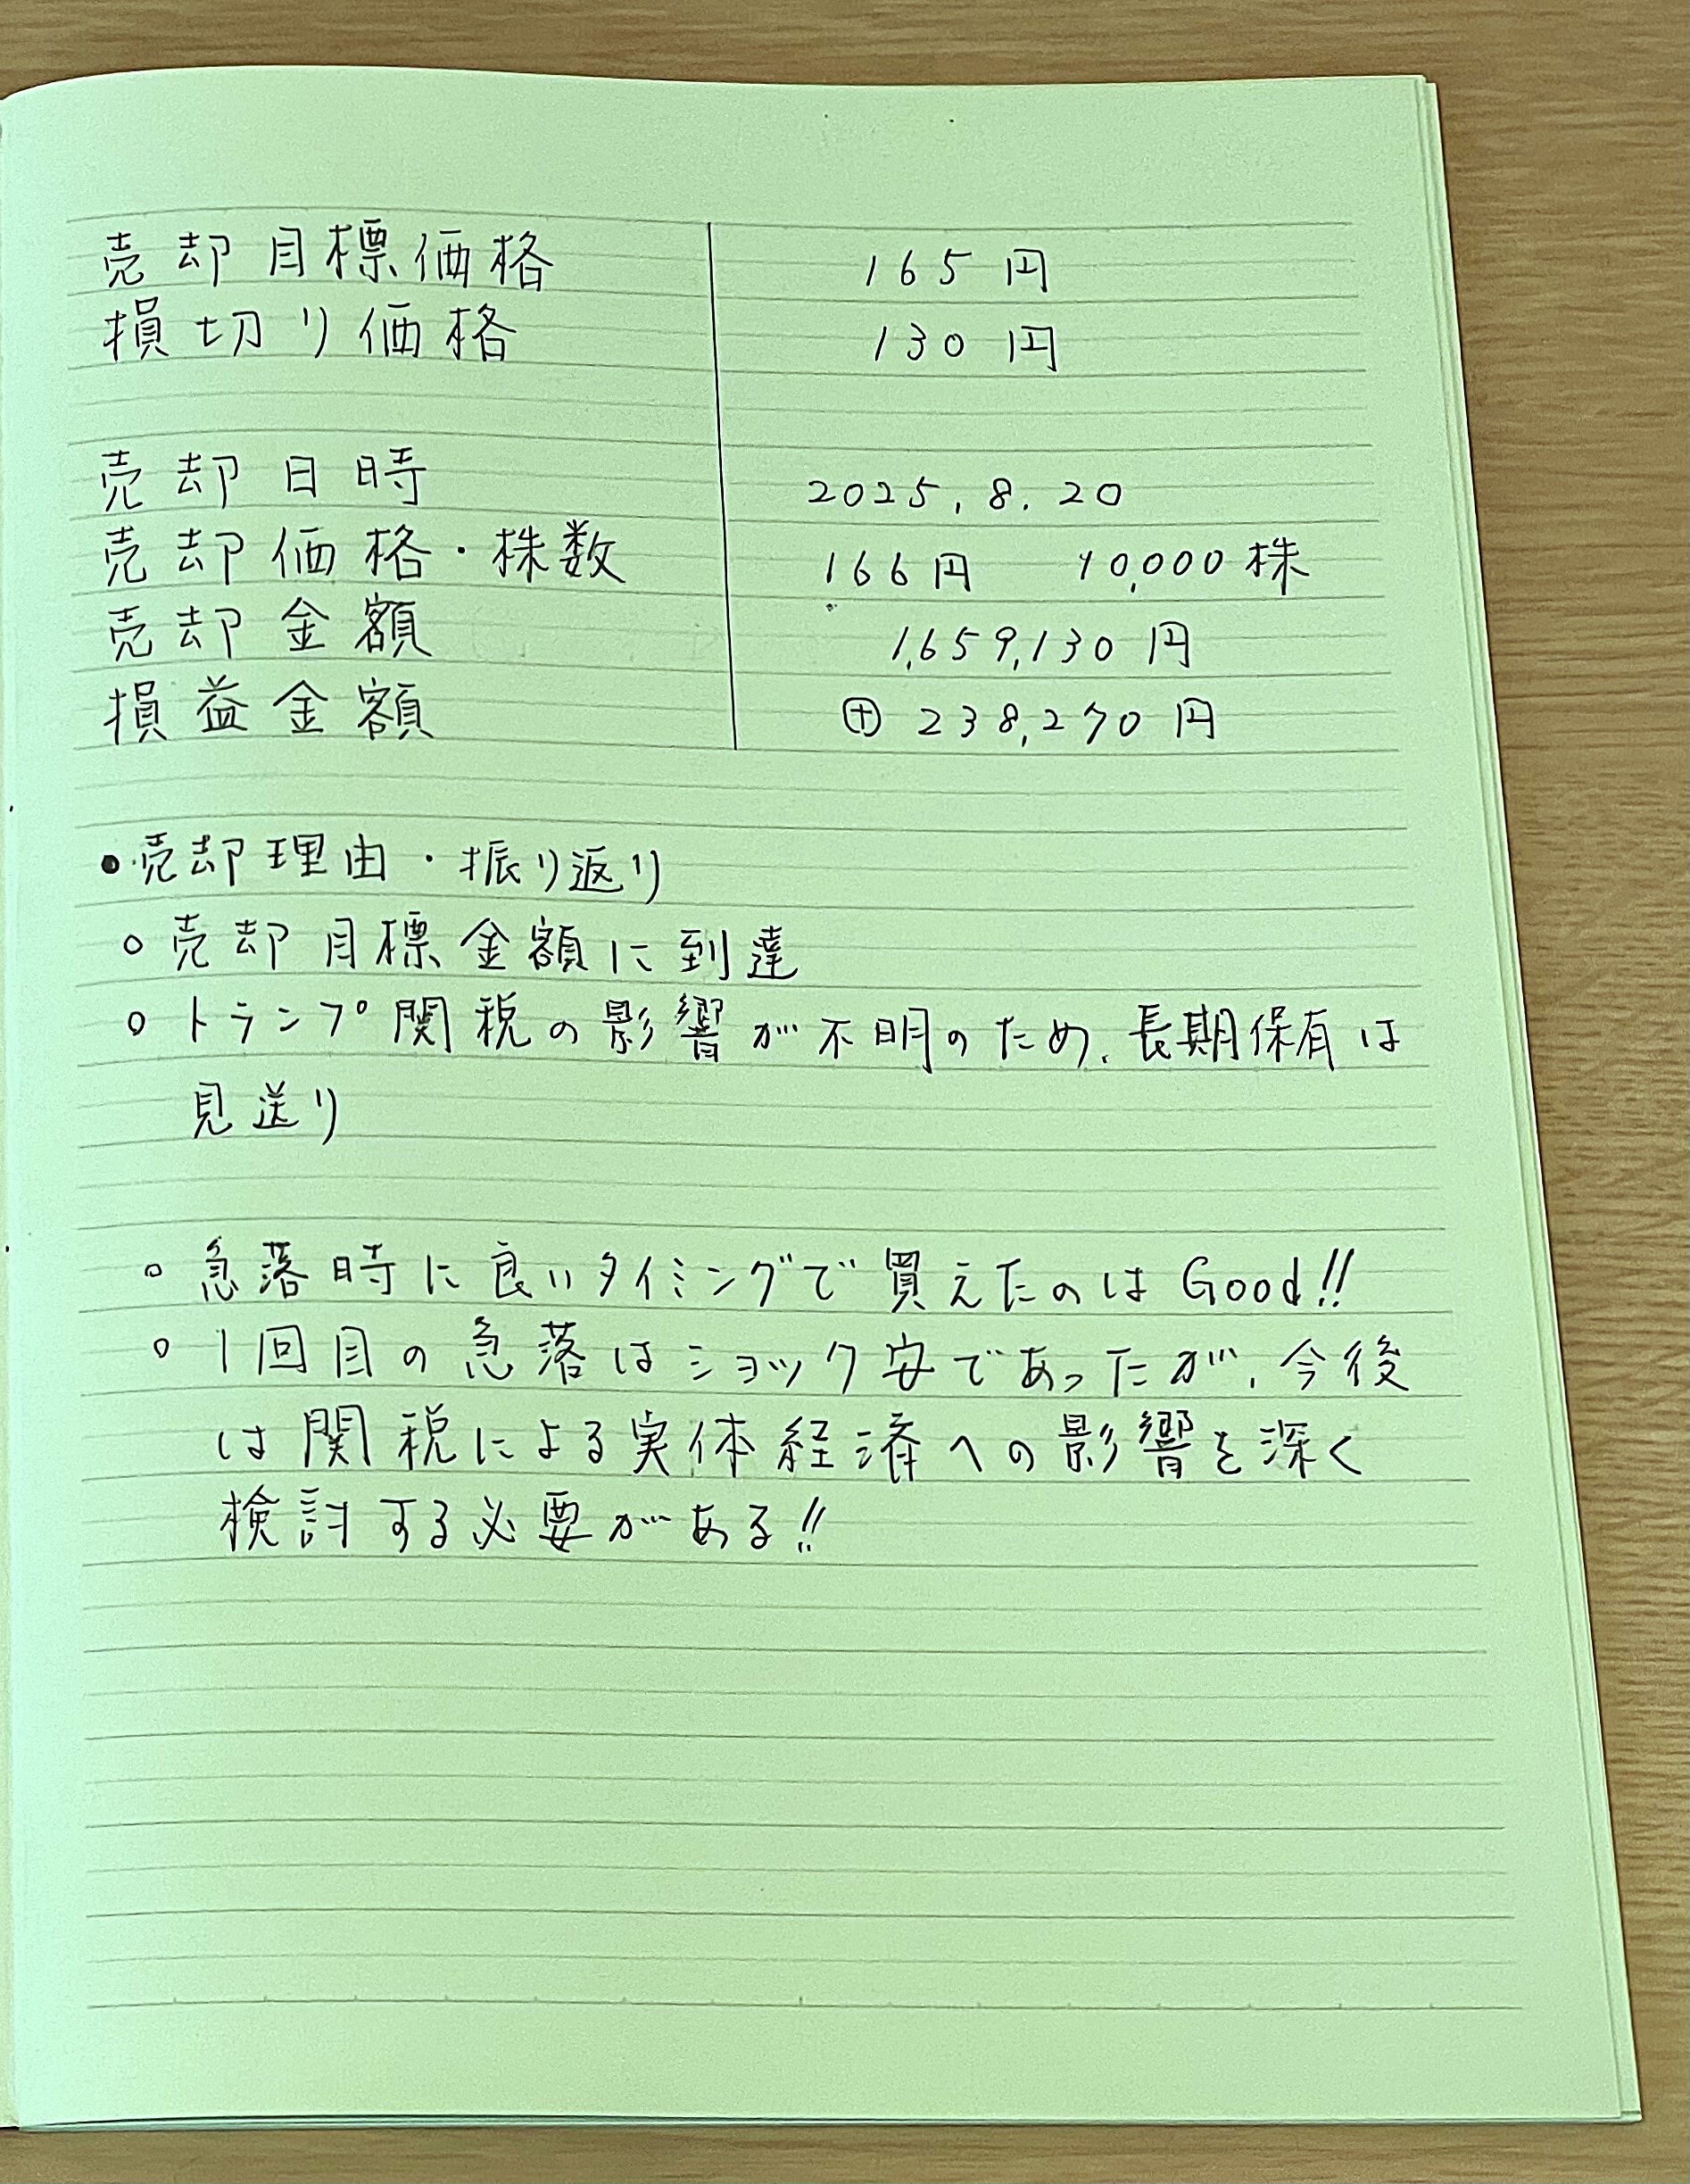 売却目標価格 165円
損切り価格 130円
売却日時 2025.8.20
売却価格・株数 166円 10,000株
売却金額 1,659,130円
損益金額 ⊕ 238,270円
●売却理由・振り返り
○売却目標金額に到達
○トランプ関税の影響が不明のため、長期保有は
見送り
○急落時に良いタイミングで買えたのはGood!!
○1回目の急落はショック安であったが、今後
は関税による実体経済への影響を深く
検討する必要がある!!